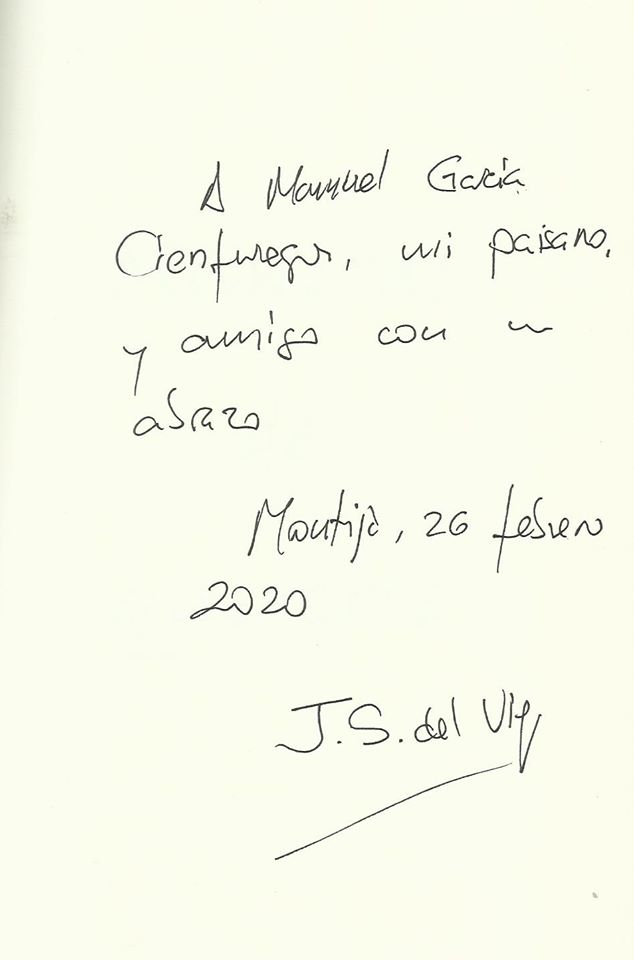 A Manuel García
Cienfuegos, mi paisano,
y amigo con un
abrazo
Montijo, 26 febrero
2020
J.S. del